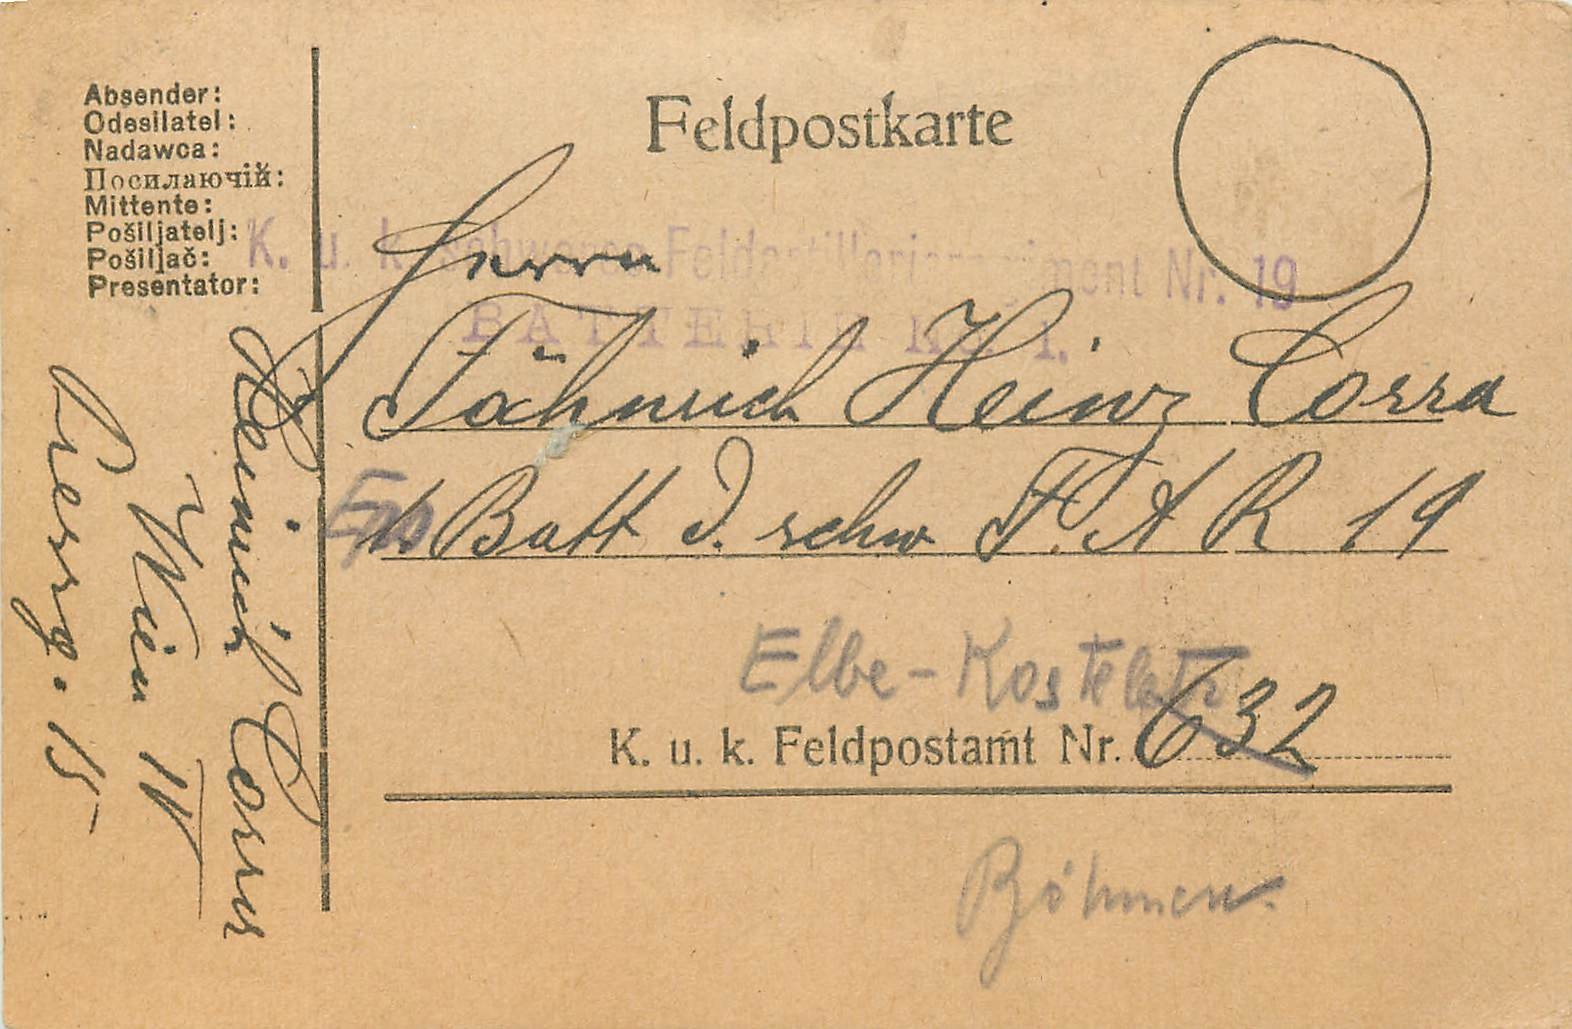 Absender:
Odesilatel:
Nadawca:
Посилаючій:
Mittente:
Pošiljatelj:
Pošiljač:
Presentator:
Feldpostkarte
K. u. k. schweres Feldartillerieregiment Nr. 19
BATTERIE Nr. 1.
Herrn
Fähnrich Heinz Corra
1. Batt d. schw F. A R 19
Elbe-Kosteletz
K. u. k. Feldpostamt Nr. 632
Böhmen.
Heinrich Corra
Wien IV
15